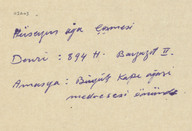 Hüseyin ağa Camesi
Devri : 894 H. Bayazıt II.
Amasya : Büyük Kapı ağası
medresesi önünde